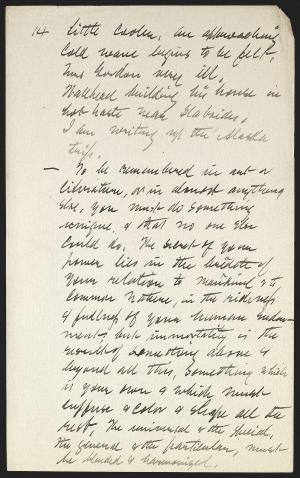 14 little cooler, an approaching
cold wave begins to be felt,
Mrs Gordon very ill,
Wallhead building his house in
hot haste near Slabsides,
I am writing up the Alaska
trip.
— To be remembered in art or
literature, or in almost anything
else, you must do something
unique, & that no one else
could do. The secret of your
power lies in the breadth of
your relation to mankind & to
common nature, in the richness
& fullness of your human endow-
ment, but immortality is the
result of something above &
beyond all this, something which
is your own & which must
suffuse & color & shape all the
rest, The universal & the special,
the general & the particular, must
be blended & harmonized.